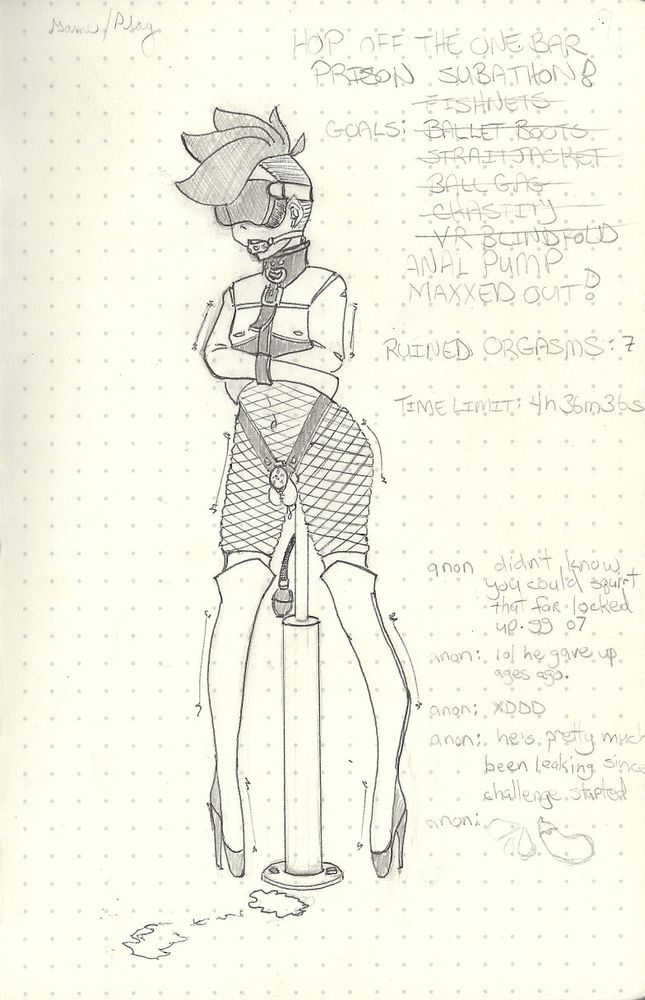 Game/Play
HOP OFF THE ONE BAR
PRISON SUBATHON!
FISHNETS
GOALS: BALLET BOOTS
STRAITJACKET
BALL GAG
CHASTITY
VR BLINDFOLD
ANAL PUMP
MAXXED OUT!
RUINED ORGASMS: 7
TIME LIMIT: 4h 36m 36s
anon didn't know
you could squirt
that far locked
up. gg o7
anon: lol he gave up
ages ago.
anon: XDDD
anon: he's pretty much
been leaking since
challenge started
anon: